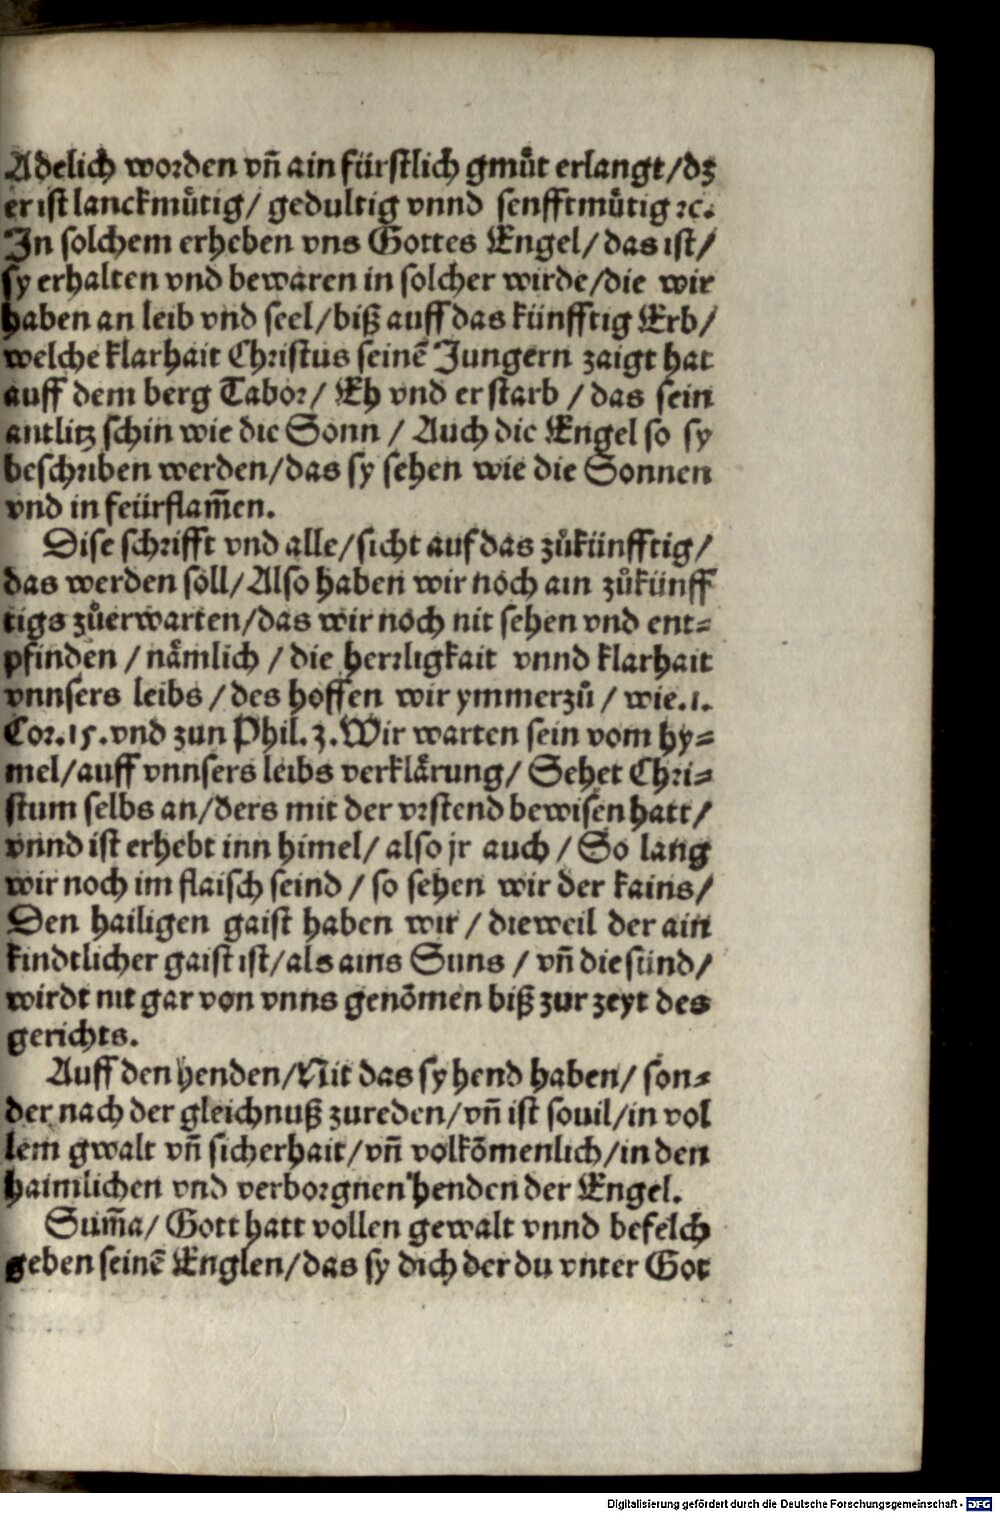 Adelich worden vñ ain fürstlich gmuͤt erlangt/dz
er ist lanckmuͤtig/ gedultig vnnd senfftmuͤtig ꝛc.
In solchem erheben vns Gottes Engel/das ist/
sy erhalten vnd bewaren in solcher wirde/die wir
haben an leib vnd seel/biß auff das künfftig Erb/
welche klarhait Christus seinẽ Jungern zaigt hat
auff dem berg Tabor/ Eh vnd er starb / das sein
antlitz schin wie die Sonn / Auch die Engel so sy
beschriben werden/das sy sehen wie die Sonnen
vnd in feürflam̃en.
Dise schrifft vnd alle/sicht auf das zuͦkünfftig/
das werden soll/Also haben wir noch ain zuͦkünff
tigs zuͦerwarten/das wir noch nit sehen vnd ent⸗
pfinden / naͤmlich / die herrligkait vnnd klarhait
vnnsers leibs / des hoffen wir ymmerzuͦ / wie.1.
Cor.15.vnd zun Phil.3.Wir warten sein vom hy⸗
mel/auff vnnsers leibs verklaͤrung/ Sehet Chri⸗
stum selbs an/ders mit der vrstend bewisen hatt/
vnnd ist erhebt inn himel/ also jr auch / So lang
wir noch im flaisch seind / so sehen wir der kains/
Den hailigen gaist haben wir / dieweil der ain
kindtlicher gaist ist/als ains Suns / vñ die sünd/
wirdt nit gar von vnns genõmen biß zur zeyt des
gerichts.
Auff den henden/Nit das sy hend haben/ son⸗
der nach der gleichnuß zureden/vñ ist souil/in vol
lem gwalt vñ sicherhait/vñ volkõmenlich/in den
haimlichen vnd verborgnen henden der Engel.
Sum̃a/ Gott hatt vollen gewalt vnnd befelch
geben seinẽ Englen/das sy dich der du vnter Got
Digitalisierung gefördert durch die Deutsche Forschungsgemeinschaft - DFG